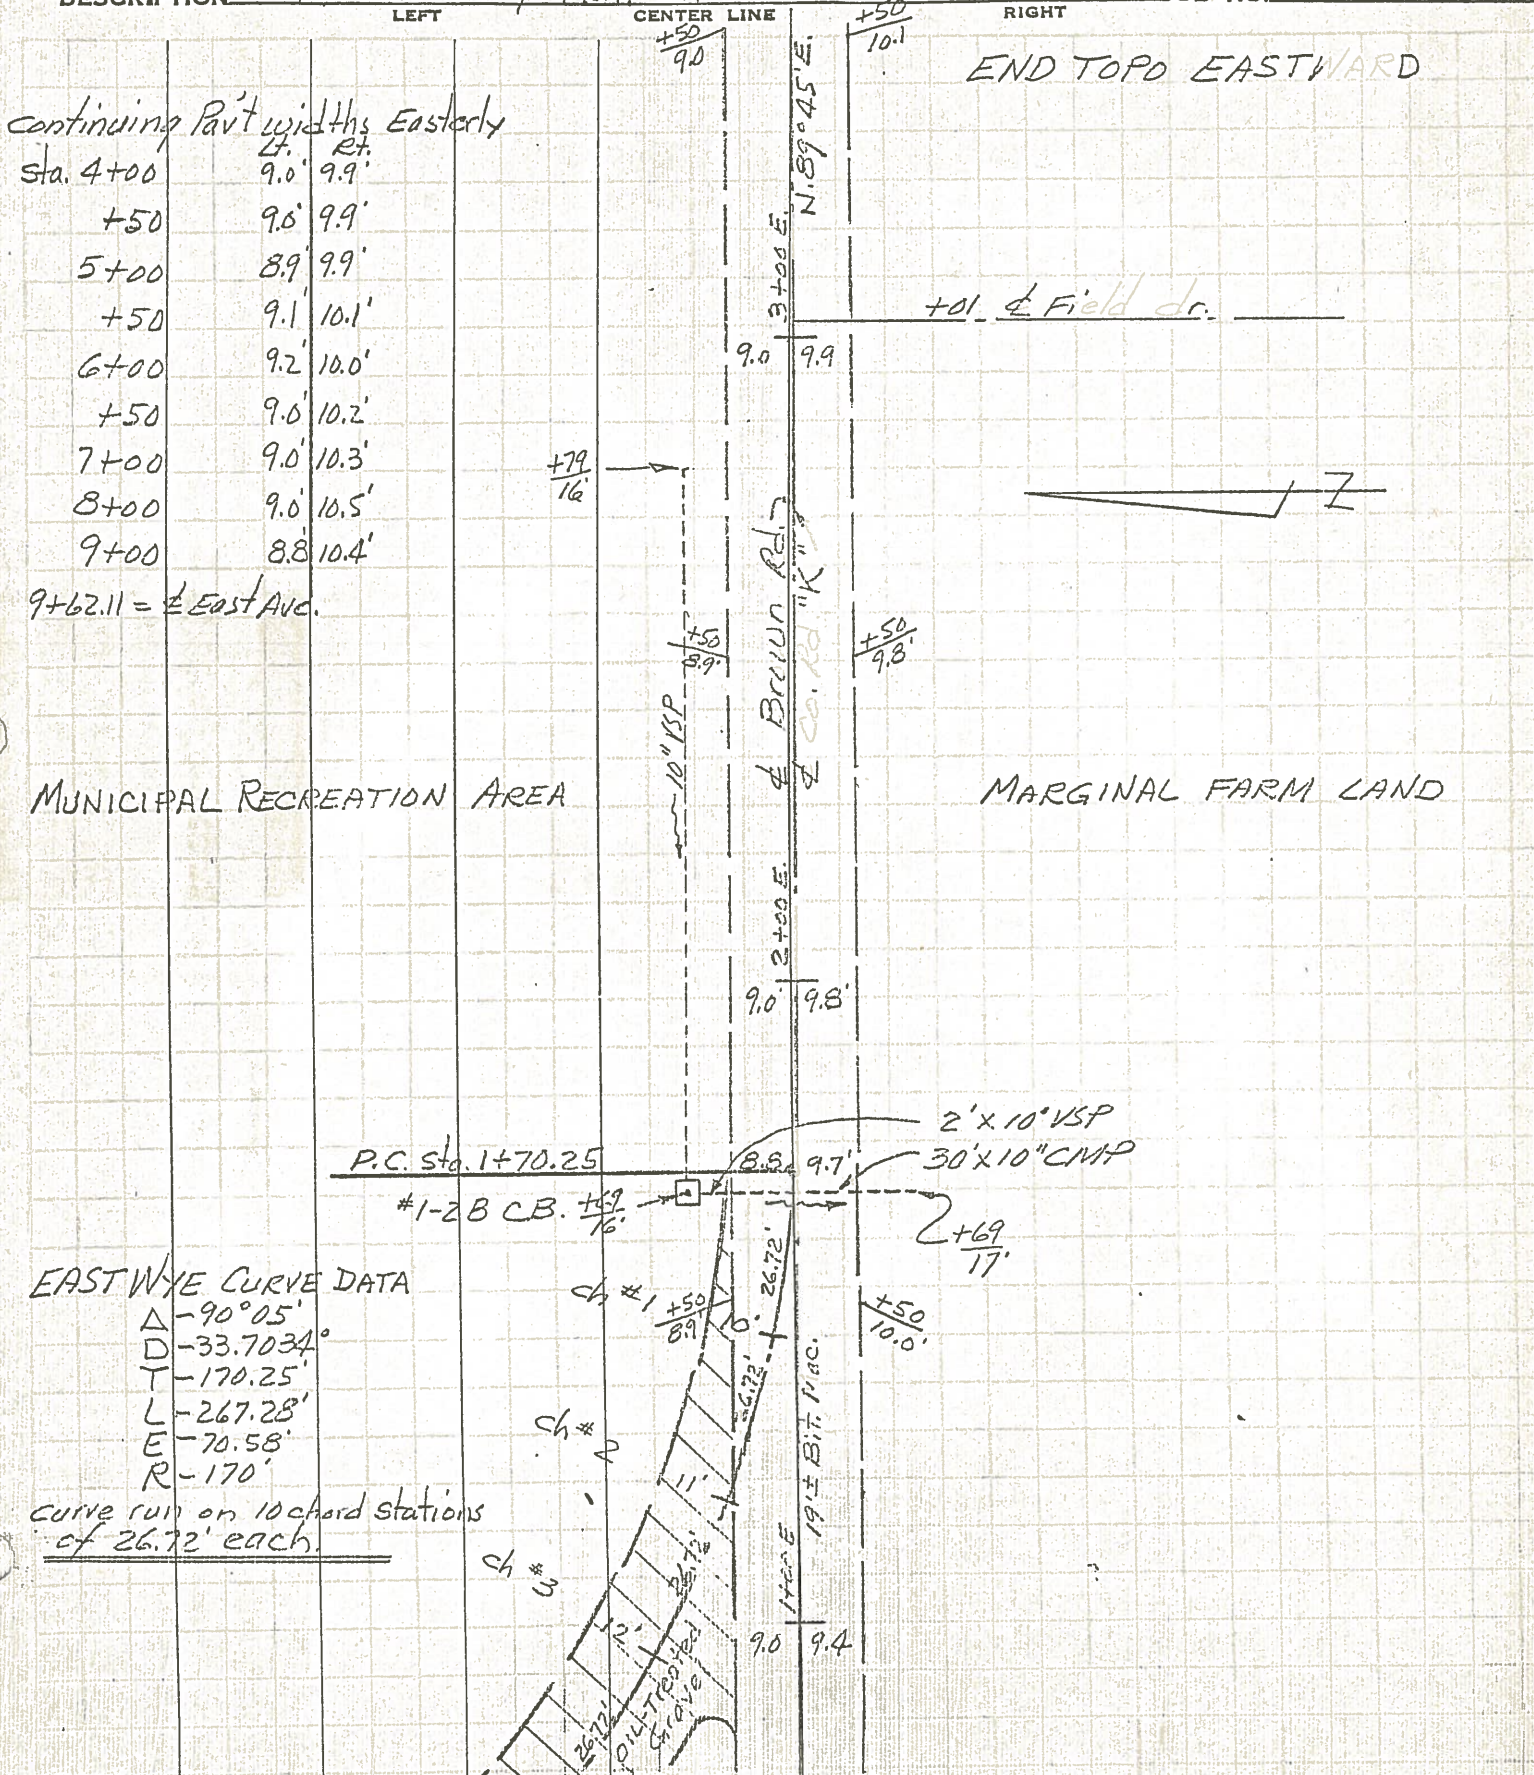 DESCRIPTION
LEFT
CENTER LINE
RIGHT
+50
9.0
+50
10.1
END TOPO EASTWARD
N.89°45'E.
continuing Pav't widths Easterly
Lt. Rt.
Sta. 4+00 9.0' 9.9'
+50 9.0' 9.9'
5+00 8.9' 9.9'
+50 9.1' 10.1'
6+00 9.2' 10.0'
+50 9.0' 10.2'
7+00 9.0' 10.3'
8+00 9.0' 10.5'
9+00 8.8' 10.4'
9+62.11 = ℄ East Ave.
3+00 E.
+01 ℄ Field dr.
9.0 9.9
+79
16'
Z
℄ Brown Rd.
℄ Co. Rd "K"
+50
8.9'
+50
9.8'
10" VSP
MUNICIPAL RECREATION AREA
MARGINAL FARM LAND
2+00 E.
9.0' 9.8'
2' X 10" VSP
30' X 10" CMP
P.C. Sta. 1+70.25
8.8' 9.7'
#1-2B C.B. +69
16'
+69
17'
EAST WYE CURVE DATA
Δ - 90°05'
D - 33.7034°
T - 170.25'
L - 267.28'
E - 70.58'
R - 170'
curve run on 10 chord stations
of 26.72' each.
ch #1
+50
8.9'
10'
26.72'
+50
10.0'
26.72'
19'± Bit. Mac.
ch #2
11'
26.72'
ch #3
12'
1+00 E
9.0 9.4
26.72'
OIL-Treated
Gravel